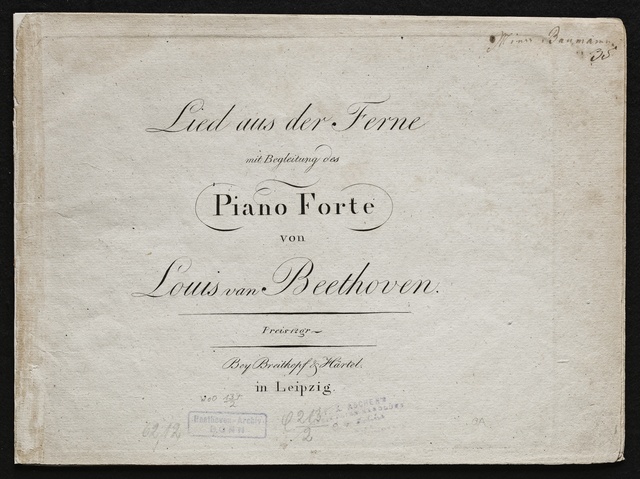 Baumann
35
Lied aus der Ferne
mit Begleitung des
Piano Forte
von
Louis van Beethoven.
Preis 12 gr
Bey Breitkopf & Härtel.
in Leipzig.
WoO 137
Beethoven-Archiv
BONN
C 213
2
62,12